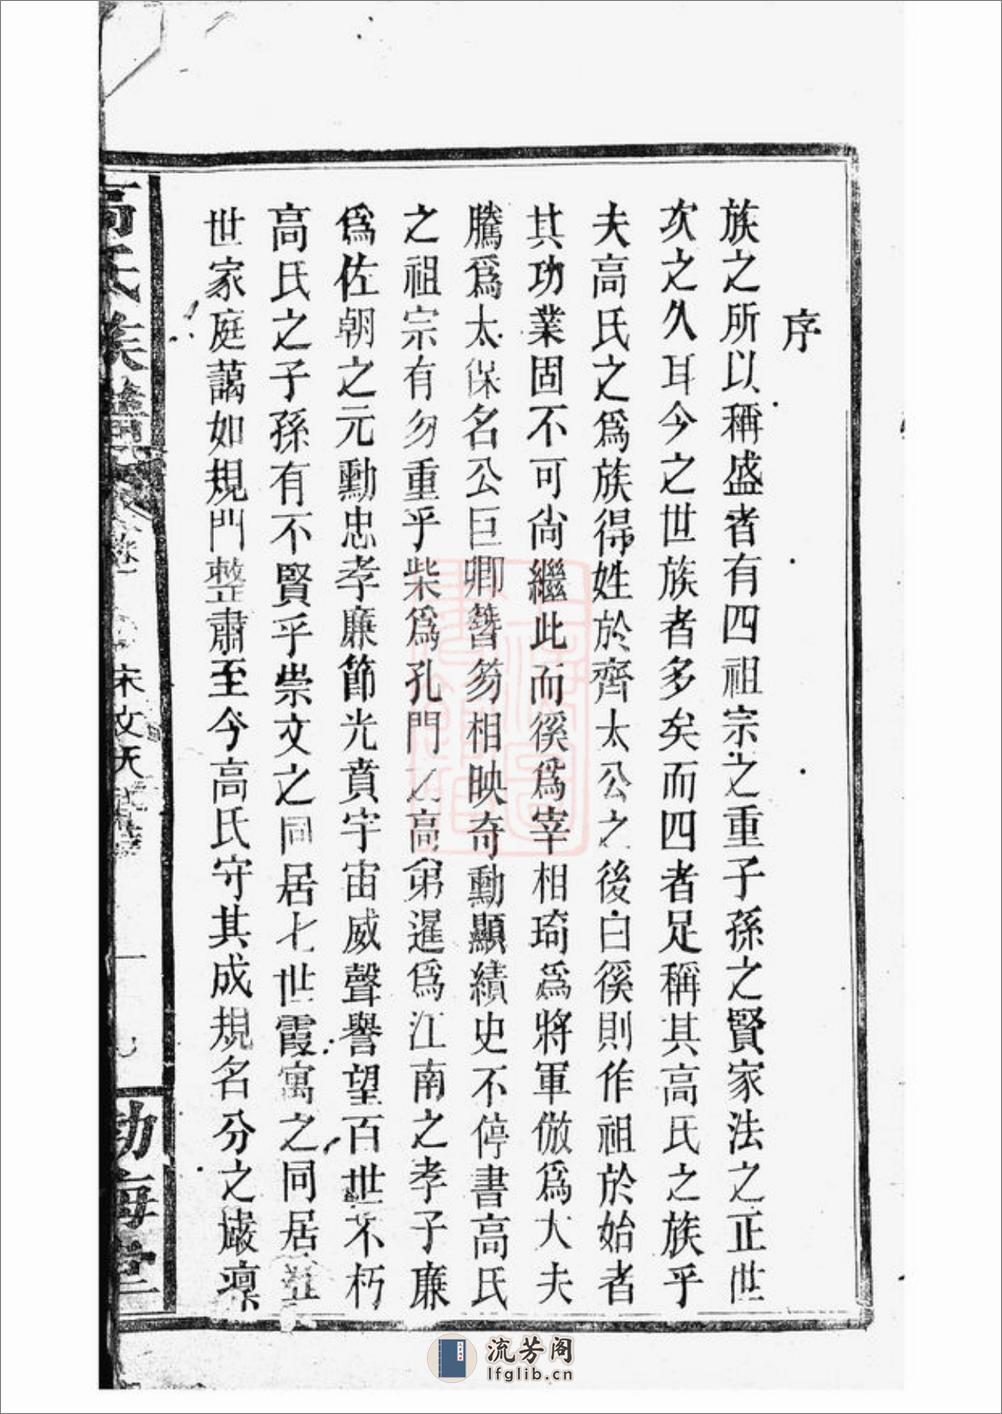 序
族之所以稱盛者有四祖宗之重子孫之賢家法之正世
次之久耳今之世族者多矣而四者足稱其高氏之族乎
夫高氏之為族得姓於齊太公之後曰徯則作祖於始者
其功業固不可尚繼此而徯為宰相琦為將軍倣為大夫
騰為太保名公巨卿簪笏相映奇勳顯績史不停書高氏
之祖宗有勿重乎柴為孔門之高弟暹為江南之孝子廉
為佐朝之元勳忠孝廉節光賁宇宙威聲譽望百世不朽
高氏之子孫有不賢乎崇文之同居七世霞寓之同居五
世家庭藹如規門整肅至今高氏守其成規名分之嚴凜
高氏族譜
卷
宋文天
一
勃海堂
流芳阁
lfglib.cn